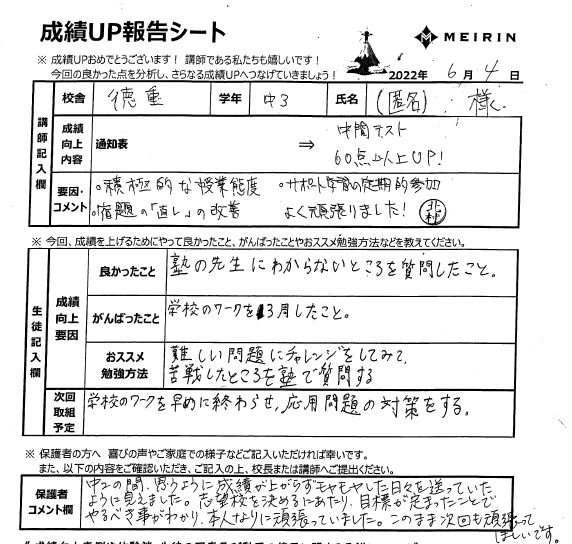 成績UP報告シート
MEIRIN
※ 成績UPおめでとうございます！ 講師である私たちも嬉しいです！
今回の良かった点を分析し、さらなる成績UPへつなげていきましょう！
2022年 6月 4日
校舎 徳重 学年 中3 氏名 (匿名) 様
講師記入欄
成績向上内容 通知表 ⇒ 中間テスト
60点以上UP!
要因・コメント
・積極的な授業態度 ・サポート学習の定期的参加
・宿題の「直し」の改善 よく頑張りました! 北村
※ 今回、成績を上げるためにやって良かったこと、がんばったことやおススメ勉強方法などを教えてください。
生徒記入欄
成績向上要因
良かったこと 塾の先生にわからないところを質問したこと。
がんばったこと 学校のワークを3周したこと。
おススメ勉強方法 難しい問題にチャレンジをしてみて、
苦戦したところを塾で質問する
次回取組予定 学校のワークを早めに終わらせ、応用問題の対策をする。
※ 保護者の方へ 喜びの声やご家庭での様子などご記入いただければ幸いです。
また、以下の内容をご確認いただき、ご記入の上、校長または講師へご提出ください。
保護者コメント欄
中2の間、思うように成績が上がらずモヤモヤした日々を送っていた
ように見えました。志望校を決めるにあたり、目標が定まったことで
やるべき事がわかり、本人なりに頑張っていました。このまま次回も頑張って
ほしいです。